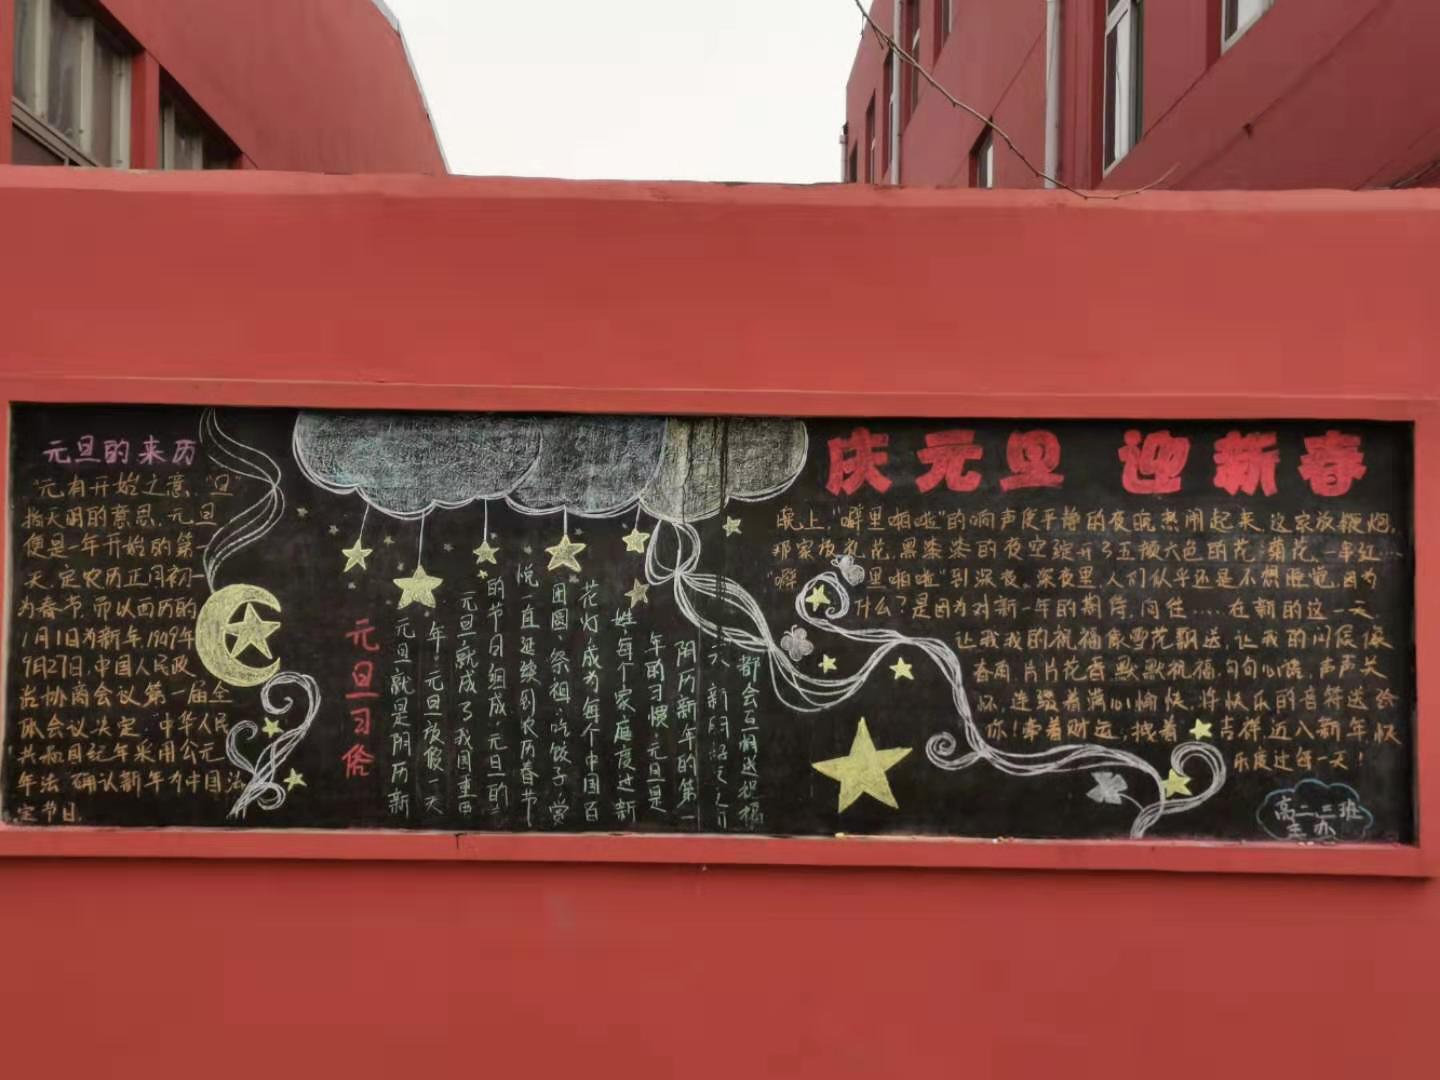 庆元旦 迎新春
元旦的来历
"元有开始之意,"旦"
指天明的意思。元旦
便是一年开始的第一
天。定农历正月初一
为春节,而以西历的
1月1日为新年,1949年
9月27日,中国人民政
治协商会议第一届全
体会议决定:"中华人民
共和国纪年采用公元
年法"确认新年为中国法
定节日。
元旦习俗
元旦就是阴历新
年,元旦放假一天
元旦就成了我国重要
的节日组成,元旦的
悦一直延续到农历春节
团圆,祭祖,吃饺子,赏
花灯成为每个中国百
姓,每个家庭度过新
年的习惯。元旦是
阴历新年的第一
都会互相送祝福
晚上,"噼里啪啦"的响声使平静的夜晚热闹起来,这家放鞭炮,
那家放礼花,黑漆漆的夜空绽开了五颜六色的花:菊花,一串红…
"噼 里啪啦"到深夜。深夜里,人们似乎还是不想睡觉,因为
什么?是因为对新一年的期待,向往……在新的这一天,
让我的祝福像雪花飘送,让我的问候像
春雨,片片花香默默祝福,句句心语,声声关
怀,连缀着满101愉快,许快乐的音符送给
你!带着财运,携着 吉祥,迈入新年,快
乐度过每一天!
高二.三班
主办